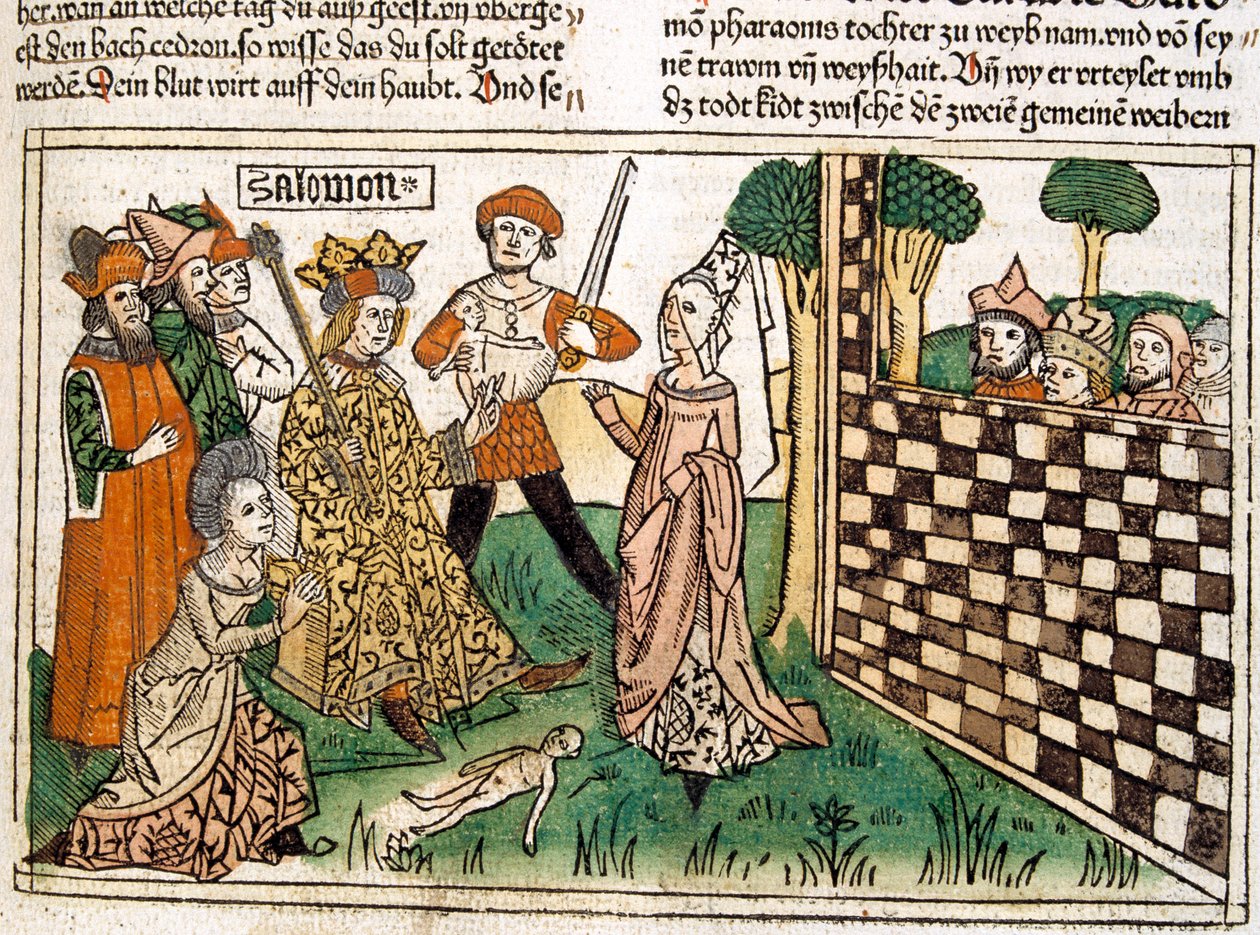 her.wan an welche tag du auß geest.vñ vberge〃
est den bach cedron.so wisse das du solt getötet
werdē.Dein blut wirt auff dein haubt. Vnd se〃
mō pharaonis tochter zu weyb nam.vnd vō sey〃
nē trawm vñ weyßhait. Vñ wy er vrteylet vmb
dz todt kidt zwischē dē zweiē gemeinē weibern
Salomon*